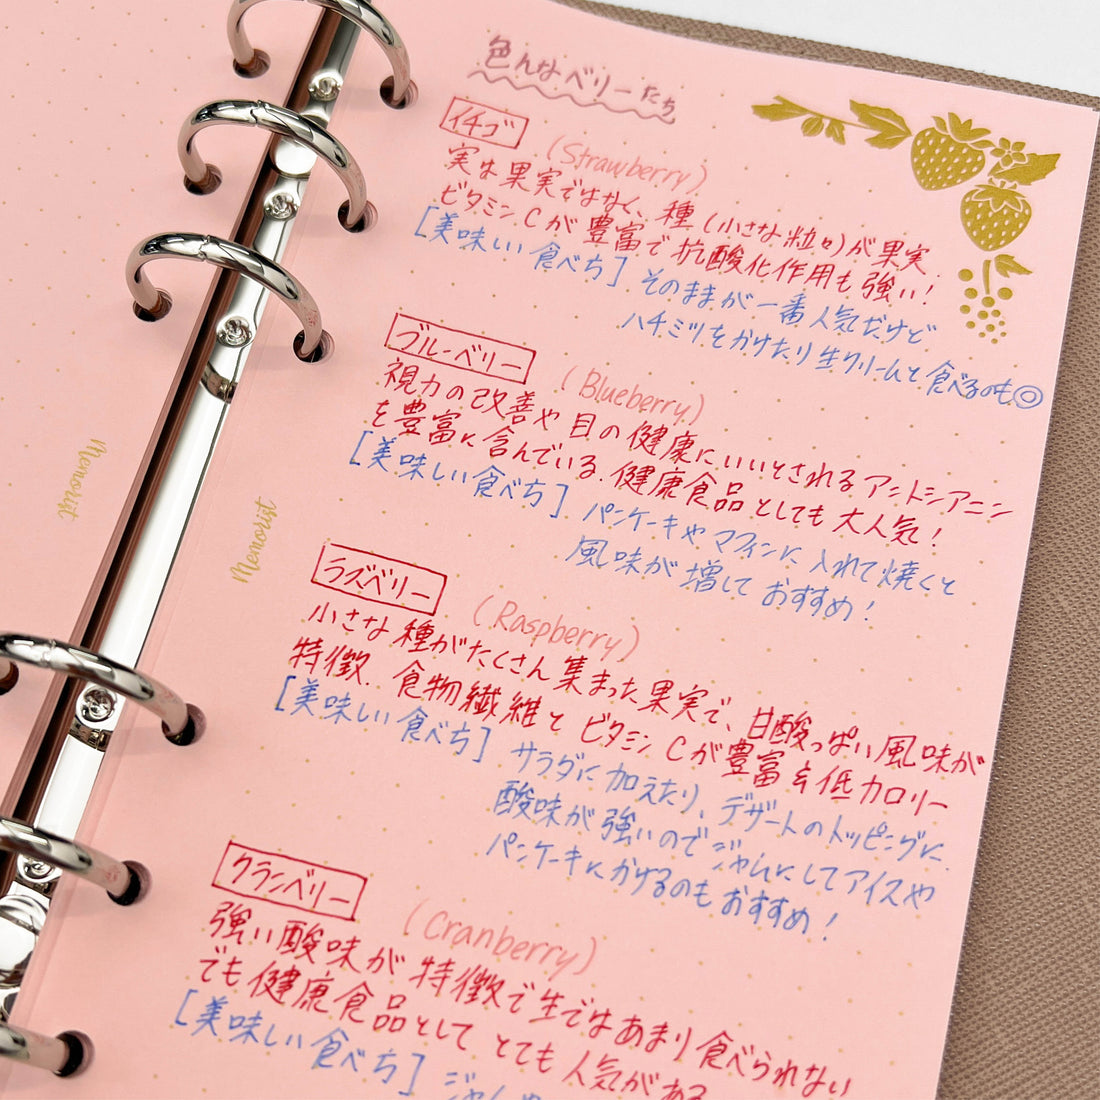 色んなベリーたち
イチゴ (Strawberry)
実は果実ではなく、種(小さな粒々)が果実.
ビタミンCが豊富で抗酸化作用も強い!
[美味しい食べち] そのままが一番人気だけど
ハチミツをかけたり生クリームと食べるのも◎
ブルーベリー (Blueberry)
視力の改善や目の健康にいいとされるアントシアニン
を豊富に含んでいる.健康食品としても大人気!
[美味しい食べち] パンケーキやマフィンに入れて焼くと
風味が増しておすすめ!
ラズベリー (Raspberry)
小さな種がたくさん集まった果実で、甘酸っぱい風味が
特徴.食物繊維とビタミンCが豊富&低カロリー
[美味しい食べち] サラダに加えたり、デザートのトッピングに.
酸味が強いのでジャムにしてアイスや
パンケーキにかけるのもおすすめ!
クランベリー (Cranberry)
強い酸味が特徴で生ではあまり食べられない
でも健康食品としてとても人気がある
[美味しい食べち] ジャムや
Memorist
Memorist